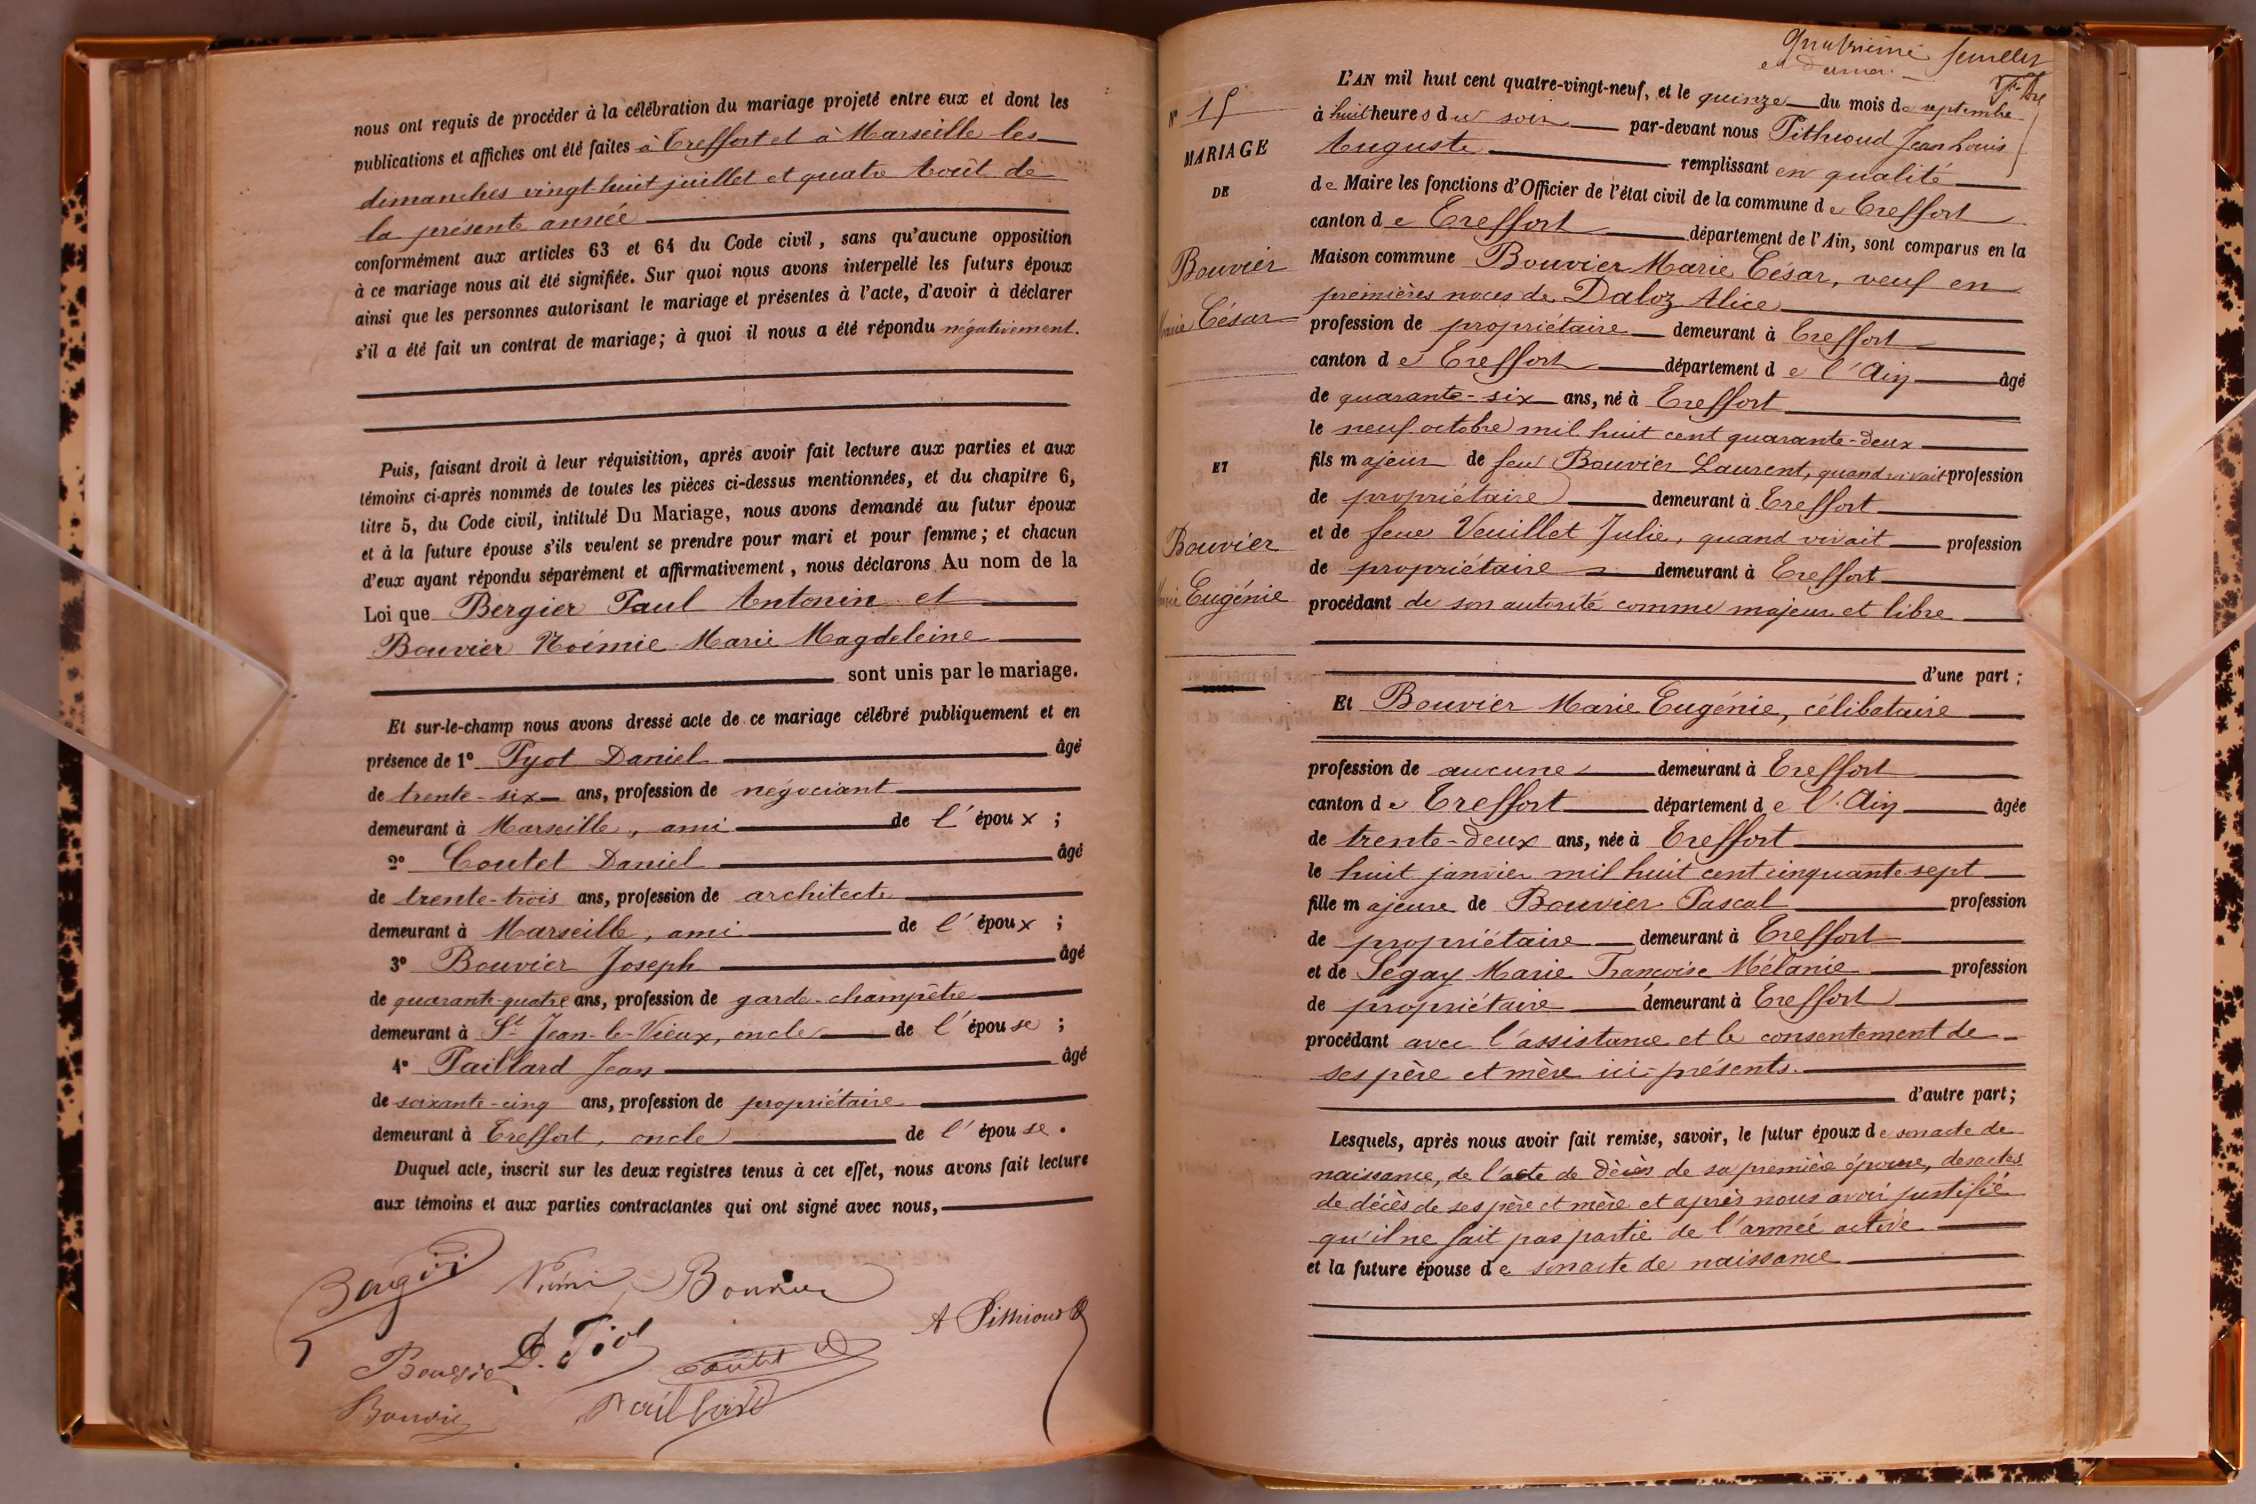 nous ont requis de procéder à la célébration du mariage projeté entre eux et dont les
publications et affiches ont été faites à Treffort et à Marseille les
dimanches vingt-huit juillet et quatre Août de
la présente année
conformément aux articles 63 et 64 du Code civil, sans qu'aucune opposition
à ce mariage nous ait été signifiée. Sur quoi nous avons interpellé les futurs époux
ainsi que les personnes autorisant le mariage et présentes à l'acte, d'avoir à déclarer
s'il a été fait un contrat de mariage; à quoi il nous a été répondu négativement.
Puis, faisant droit à leur réquisition, après avoir fait lecture aux parties et aux
témoins ci-après nommés de toutes les pièces ci-dessus mentionnées, et du chapitre 6,
titre 5, du Code civil, intitulé Du Mariage, nous avons demandé au futur époux
et à la future épouse s'ils veulent se prendre pour mari et pour femme; et chacun
d'eux ayant répondu séparément et affirmativement, nous déclarons Au nom de la
Loi que Bergier Paul Antonin et
Bouvier Noémie Marie Magdeleine
sont unis par le mariage.
Et sur-le-champ nous avons dressé acte de ce mariage célébré publiquement et en
présence de 1° Pyot Daniel âgé
de trente-six ans, profession de négociant
demeurant à Marseille, ami de l'époux;
2° Coutet Daniel âgé
de trente-trois ans, profession de architecte
demeurant à Marseille, ami de l'époux;
3° Bouvier Joseph âgé
de quarante-quatre ans, profession de garde-champêtre
demeurant à St Jean-le-Vieux, oncle de l'épouse;
4° Paillard Jean âgé
de soixante-cinq ans, profession de propriétaire
demeurant à Treffort, oncle de l'épouse.
Duquel acte, inscrit sur les deux registres tenus à cet effet, nous avons fait lecture
aux témoins et aux parties contractantes qui ont signé avec nous,
Bergier Bouvier
A Pithioud
Bouvier Coutet D
Bouvier Paillard
Quatrième feuillet
et dernier
N° 15
MARIAGE
DE
Bouvier
Marie César
ET
Bouvier
Marie Eugénie
L'AN mil huit cent quatre-vingt-neuf, et le quinze du mois de septembre
à huit heures du soir par-devant nous Pithioud Jean Louis
Auguste remplissant en qualité
de Maire les fonctions d'Officier de l'état civil de la commune de Treffort
canton de Treffort département de l'Ain, sont comparus en la
Maison commune Bouvier Marie César, veuf en
premières noces de Daloz Alice
profession de propriétaire demeurant à Treffort
canton de Treffort département de l'Ain âgé
de quarante-six ans, né à Treffort
le neuf octobre mil huit cent quarante-deux
fils majeur de feu Bouvier Laurent, quand vivait profession
de propriétaire demeurant à Treffort
et de feue Veuillet Julie, quand vivait profession
de propriétaire demeurant à Treffort
procédant de son autorité comme majeur et libre
d'une part;
Et Bouvier Marie Eugénie, célibataire
profession de aucune demeurant à Treffort
canton de Treffort département de l'Ain âgée
de trente-deux ans, née à Treffort
le huit janvier mil huit cent cinquante-sept
fille majeure de Bouvier Pascal profession
de propriétaire demeurant à Treffort
et de Segay Marie Françoise Mélanie profession
de propriétaire demeurant à Treffort
procédant avec l'assistance et le consentement de
ses père et mère ici présents.
d'autre part;
Lesquels, après nous avoir fait remise, savoir, le futur époux de son acte de
naissance, de l'acte de décès de sa première épouse, des actes
de décès de ses père et mère et après nous avoir justifié
qu'il ne fait pas partie de l'armée active
et la future épouse de son acte de naissance